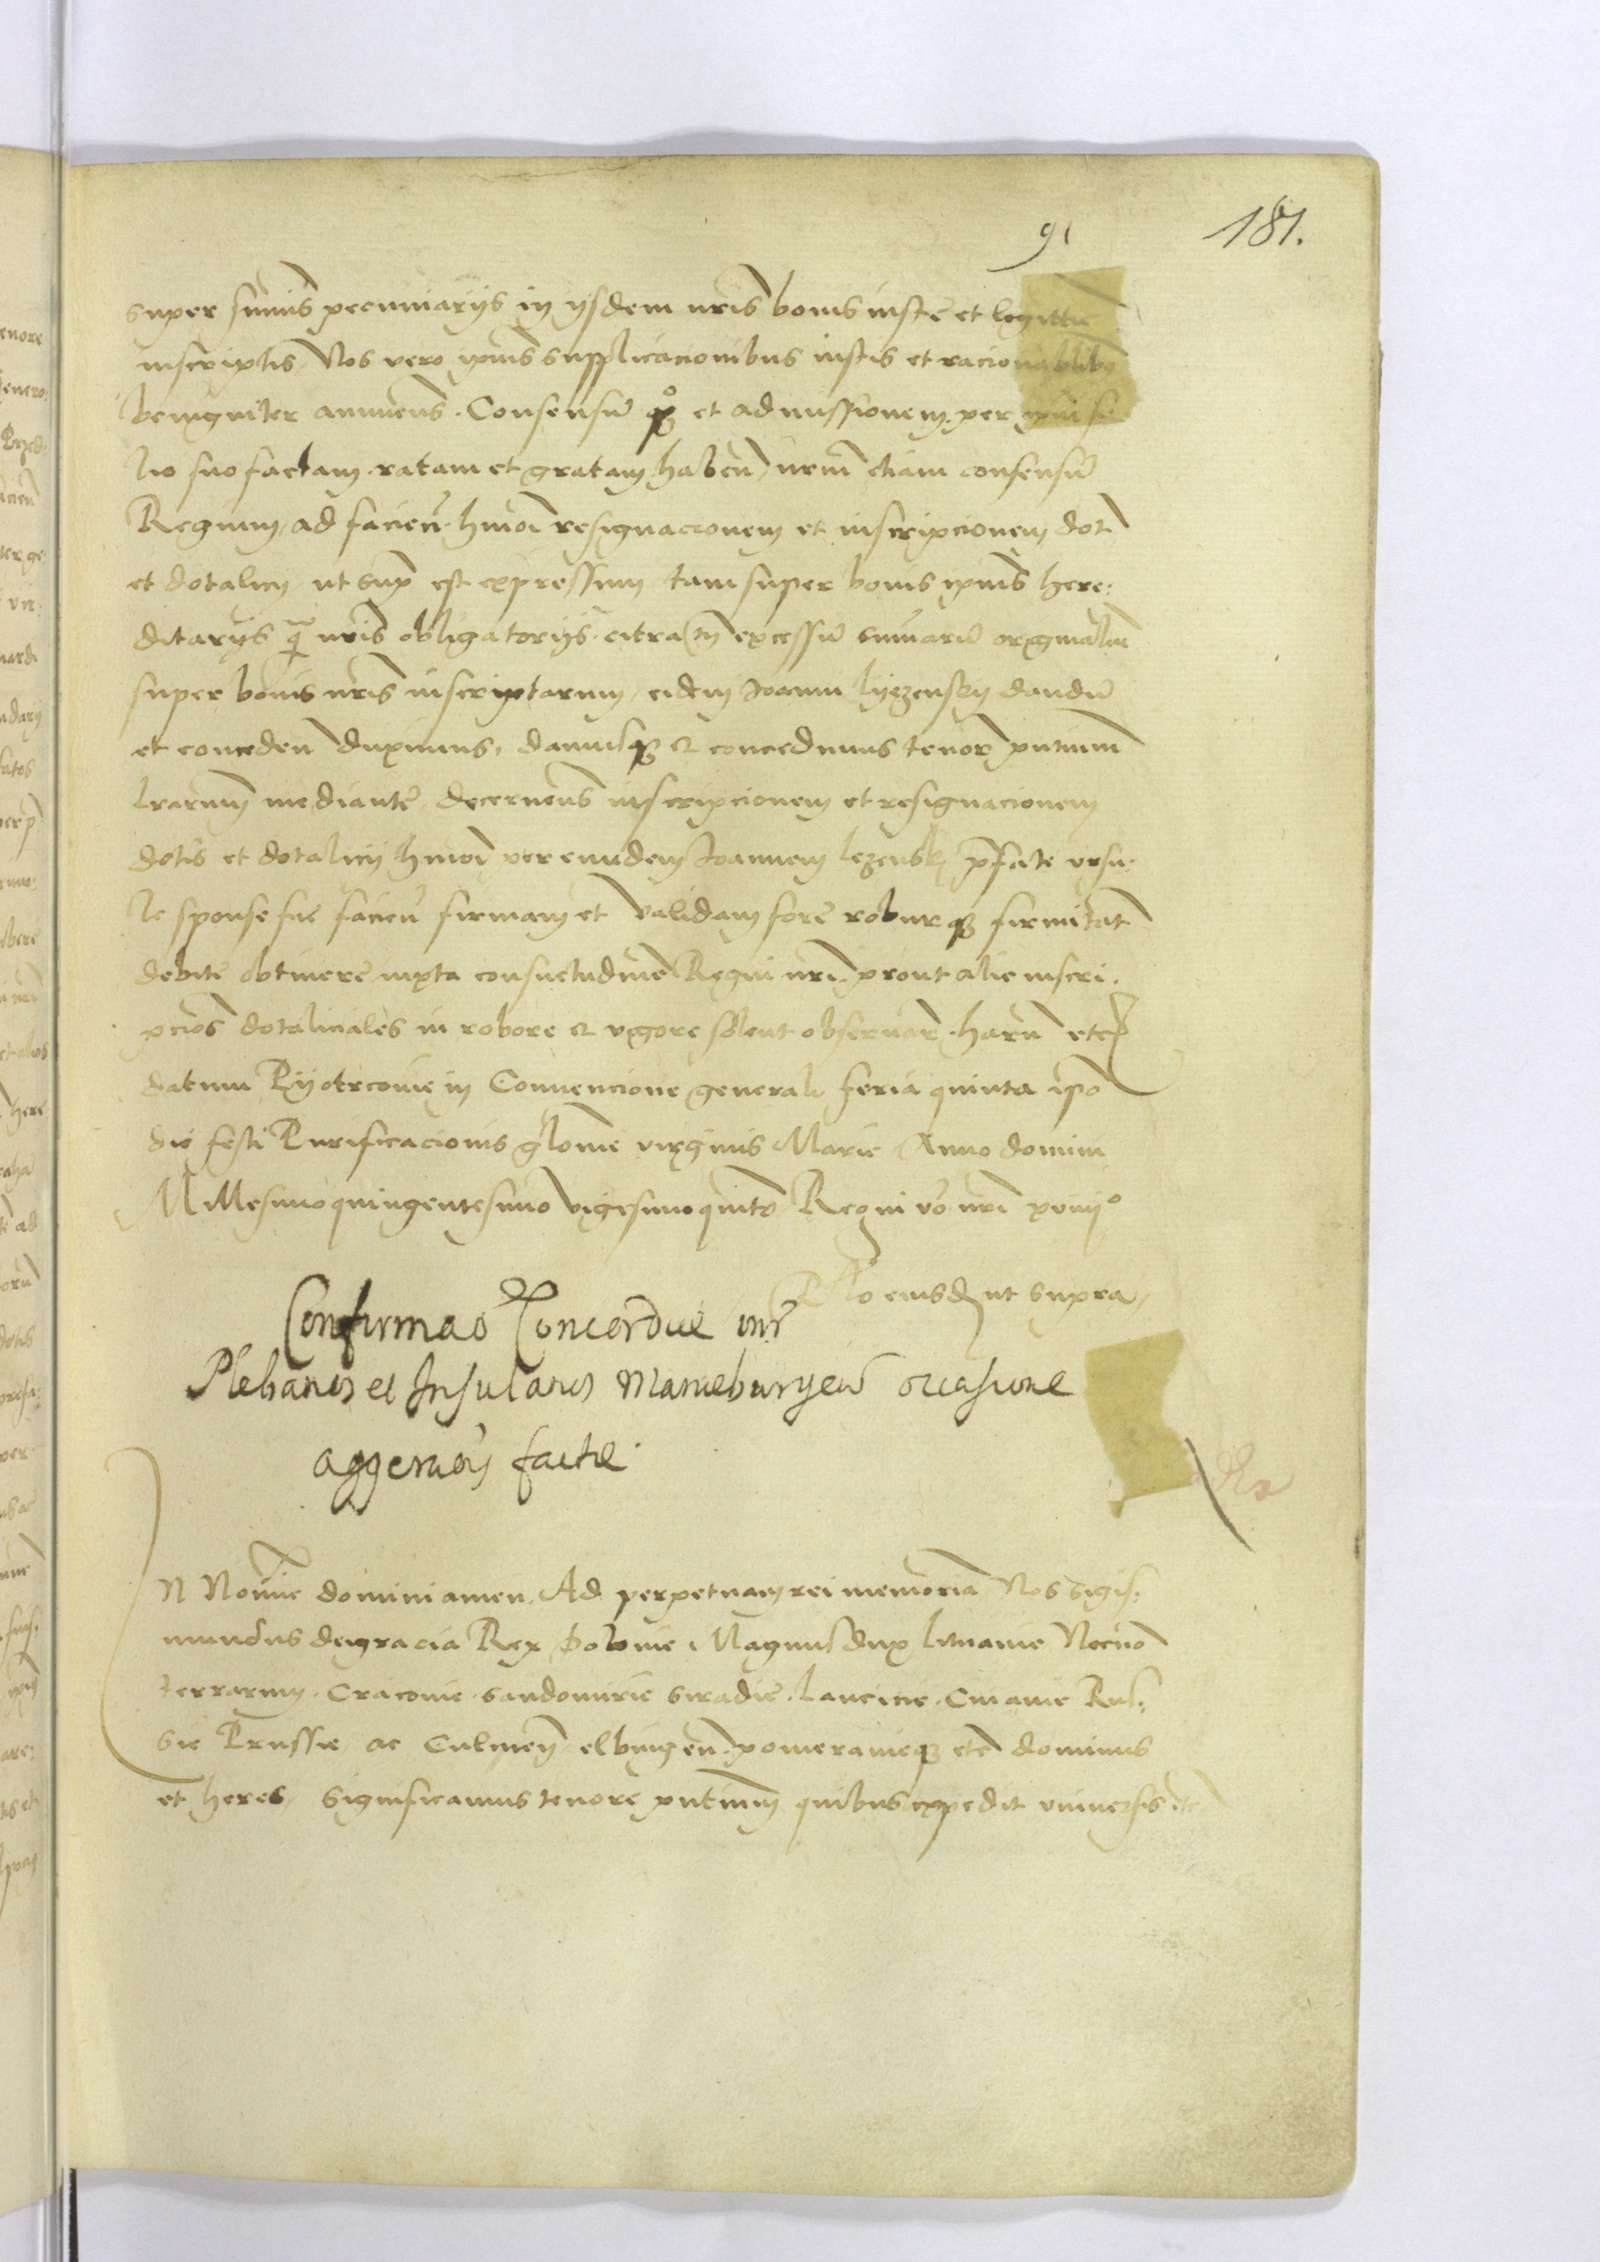 91
181.
super summis pecuniarijs in ijsdem nris bonis iuste et legittie
inscriptis Nos vero ipius supplicacionibus iustis et racionabilibus
benigniter annuens. Consensu et admissionem per
suo factam ratam et gratam haben nrm etiam consensu
Regium ad facien hmoi resignacionem et inscripcionem dot
et dotalicy ut sup est expressum tam super bonis ipius here:
ditarijs q nris obligatorijs citra tn excessu summaru orginaliu
super bonis nris inscriptarum eidem Joanni lyezensky dandu
et conceden duximus, damusq et concedimus tenore pntium
lrarum mediante decernens inscripcionem et resignacionem
dotis et dotalicij hmoi per eundem Joannem lezensky pfate vrsu-
le sponse sue facien firmam et validam fore roburq firmitat
debite obtinere iuxta consuetudine Regni nri prout alie inscri-
pcios dotaliciales in robore et vigore solent observari. haru etc
datum Pyotrcovie in Convencione generali feria quinta ipo
die festi Purificacionis gloriose virginis Marie Anno domini
Millesimoquingentesimo vigesimoquinto Regni vo nri xviij°
Rlo eiusd ut supra
Confirmao Concordie intr
Plebanos et Insulanos Marieburgen occasione
aggeracois facte
N Nomine domini amen. Ad perpetuam rei memoria Nos Sigis:
mundus dei gracia Rex Polonie Magnus dux lituanie Necno
terrarum Cracovie Sandomirie Siradie lancicie Cuiavie Rus:
sie Prussie ac Culmen elbingen pomeranieq etc dominus
et heres, Significamus tenore pntium quibus expedit vniversis etc